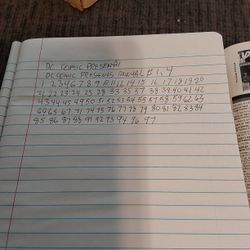 DC COMIC PRESENTS
DC COMIC PRESENTS ANNUAL # 1, 4
1 2 3 4 6 7 8 9 10 11 12 14 15 16 17 18 19 20
21 22 23 24 25 28 33 35 37 38 39 40 41 42
43 44 45 49 50 51 52 53 54 55 56 57 58 59 62 63
64 65 67 71 74 75 76 77 78 79 80 81 82 83 84
85 86 87 88 91 92 93 94 96 97